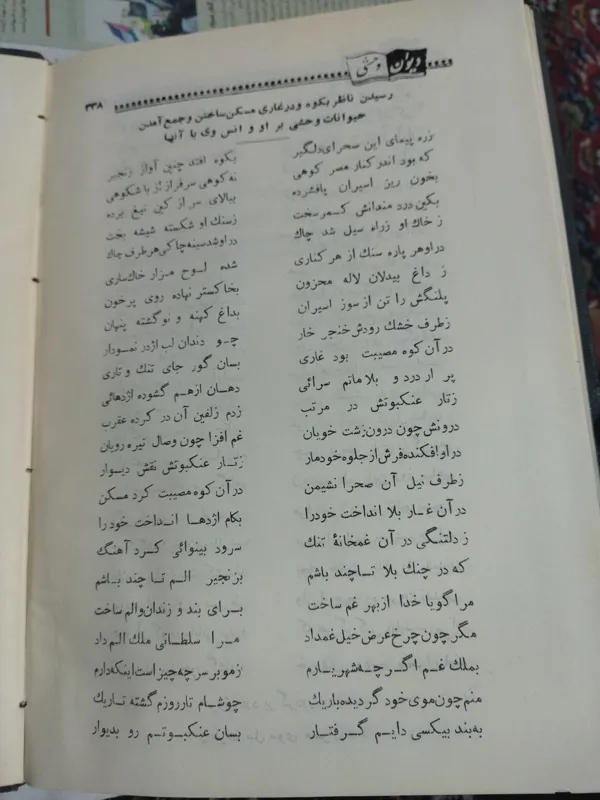 دیوان وحشی
۳۳۸
رسیدن ناظر بکوه و در غاری مسکن ساختن و جمع آمدن
حیوانات وحشی بر او و انس وی با آنها
زره پیمای این سحرای دلگیر بکوه افتد چنین آواز زنجیر
که بود اندر کنار مصر کوهی نه کوهی سرفراز از با شکوهی
بخون ریز اسیران پافشرده ببالای سر از کین تیغ برده
بکین درد مندانش کمر سخت زسنك او شکسته شیشه بخت
ز خاك او زراه سیل شد چاك در او شد سینه چاکی هر طرف چاك
در او هر پاره سنك از هر کناری شده لوح مزار خاك ساری
ز داغ بیدلان لاله محزون بخاکستر نهاده روی پرخون
پلنگش را تن از سوز اسیران بداغ کهنه و نو گشته پنهان
زطرف خشك رودش خنجر خار چو دندان لب اژدر نمودار
در آن کوه مصیبت بود غاری بسان گور جای تنك و تاری
پر از درد و بلا ماتم سرائی دهان ازهم گشوده اژدهائی
زتار عنکبوتش در مرتب زدم زلفین آن در کرده عقرب
درونش چون درون زشت خویان غم افزا چون وصال تیره رویان
در او افکنده فرش از جلوه خود مار زتار عنکبوتش نقش دیوار
زطرف نیل آن صحرا نشیمن در آن کوه مصیبت کرد مسکن
در آن غار بلا انداخت خود را بکام اژدها انداخت خود را
ز دلتنگی در آن غمخانهٔ تنك سرود بینوائی کرد آهنگ
که در چنك بلا تا چند باشم بزنجیر الم تا چند باشم
مرا گویا خدا از بهر غم ساخت برای بند و زندان و الم ساخت
مگر چون چرخ عرض خیل غم داد مرا سلطانی ملك الم داد
بملك غم اگر چه شهریارم زمو بر سر چه چیز است اینکه دارم
منم چون موی خود گردیده باریك چو شام تار روزم گشته تاریك
به بند بیکسی دایم گرفتار بسان عنکبوتم رو بدیوار